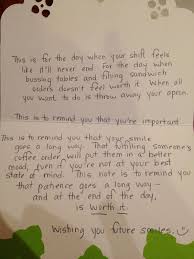 This is for the day when your shift feels
like it'll never end. For the day when
bussing tables and filling sandwich
orders doesn't feel worth it. When all
you want to do is throw away your apron.
This is to remind you that you're important.
This is to remind you that your smile
goes a long way. That fulfilling someone's
coffee order will put them in a better
mood, even if you're not at your best
state of mind. This note is to remind you
that patience goes a long way-
and at the end of the day,
is worth it.
Wishing you future smiles,